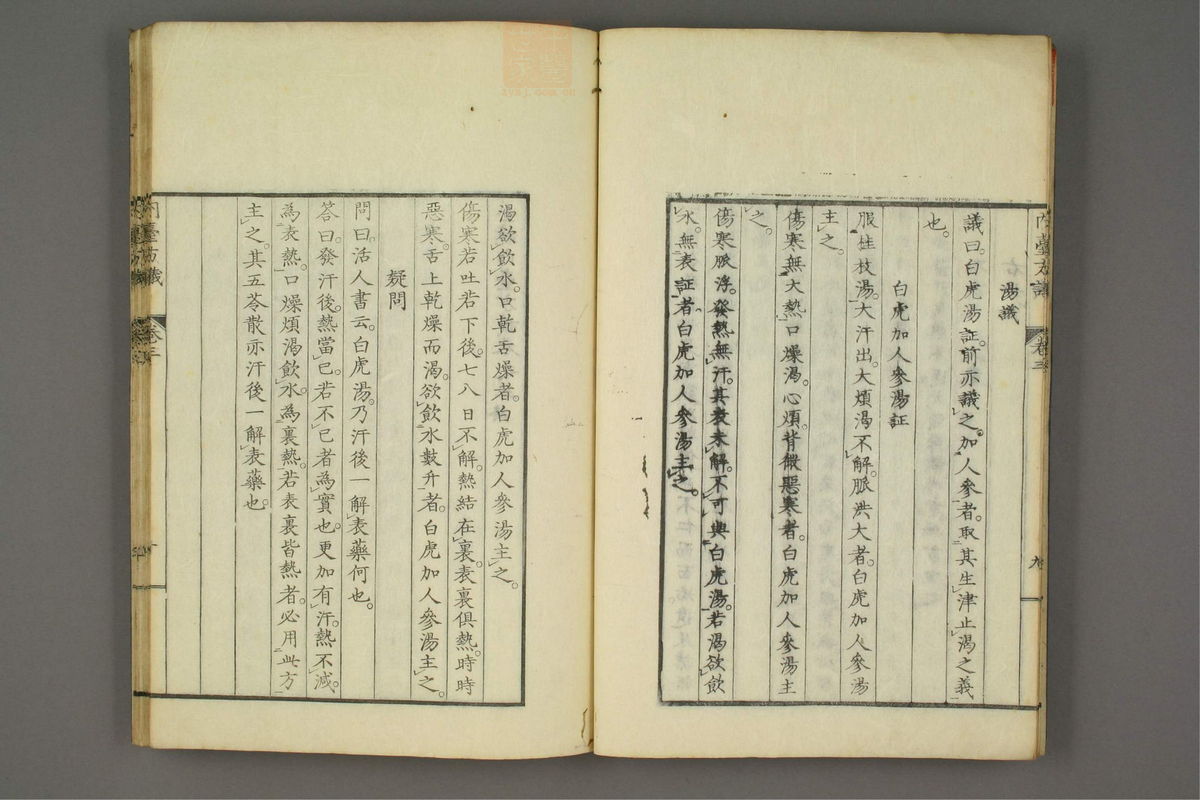 內臺方議 卷三
湯議
議曰。白虎湯証。前亦議之。加人參者。取其生津止渴之義
也。
白虎加人參湯証
服桂枝湯。大汗出。大煩渴不解。脈洪大者。白虎加人參湯
主之。
傷寒無大熱。口燥渴。心煩。背微惡寒者。白虎加人參湯主
之。
傷寒脈浮。發熱無汗。其表未解。不可與白虎湯。若渴欲飲
水。無表証者。白虎加人參湯主之。
渴欲飲水。口乾舌燥者。白虎加人參湯主之。
傷寒若吐若下後。七八日不解。熱結在裏。表裏俱熱。時時
惡寒。舌上乾燥而渴。欲飲水數升者。白虎加人參湯主之。
疑問
問曰。活人書云。白虎湯。乃汗後一解表藥何也。
答曰。發汗後。熱當已。若不已者。為實也。更加有汗。熱不減。
為表熱。口燥煩渴飲水。為裏熱。若表裏皆熱者。必用此方
主之。其五苓散亦汗後一解表藥也。
內臺方議 卷三